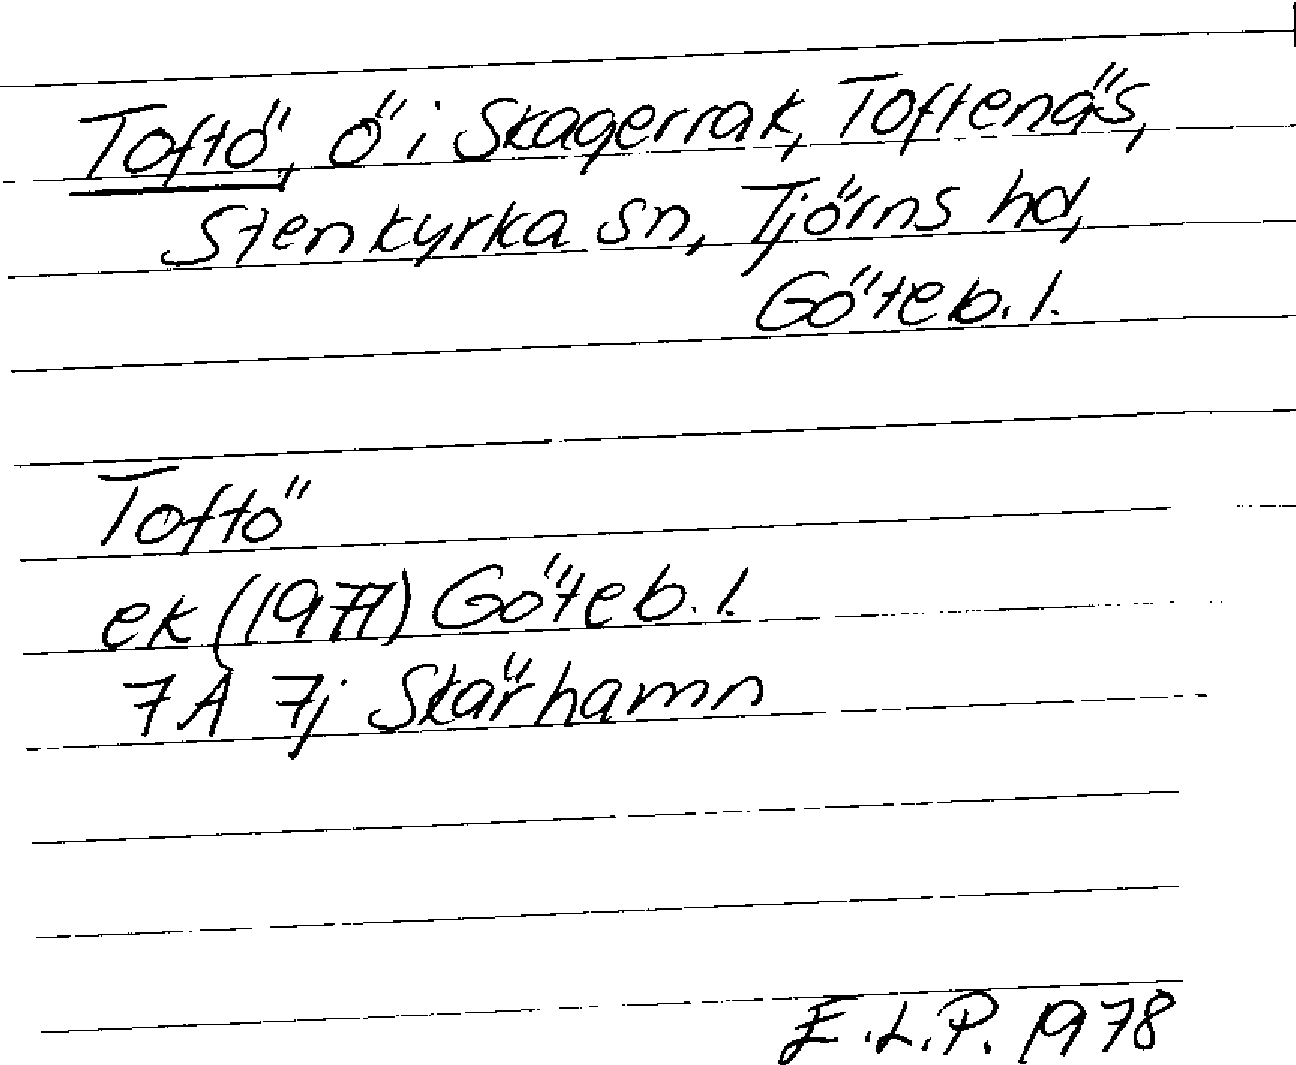 Toftö, ö i Skagerrak, Toftenäs,
Stenkyrka sn, Tjörns hd,
Göteb. l.
Toftö
ek (1977) Göteb. l.
7A 7j Skärhamn
E.L.P. 1978